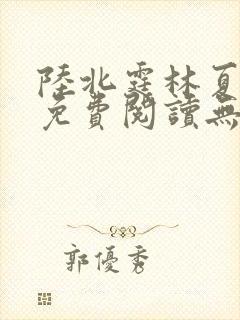 陸北霆林夏
免費閱讀無
郭優秀